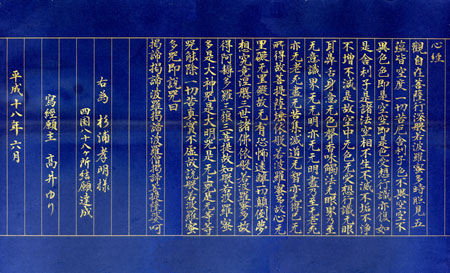 心経
観自在菩薩行深般若波羅蜜多時照見五
蘊皆空度一切苦厄舎利子色不異空空不
異色色即是空空即是色受想行識亦復如
是舎利子是諸法空相不生不滅不垢不浄
不増不減是故空中无色无受想行識无眼
耳鼻舌身意无色聲香味觸法无眼界乃至
无意識界无无明亦无无明盡乃至无老死
亦无老死盡无苦集滅道无智亦无得以无
所得故菩提薩埵依般若波羅蜜多故心无
罣礙无罣礙故无有恐怖遠離一切顛倒夢
想究竟涅槃三世諸佛依般若波羅蜜多故
得阿耨多羅三藐三菩提故知般若波羅蜜
多是大神咒是大明咒是无上咒是无等等
咒能除一切苦真實不虚故説般若波羅蜜
多咒即説咒曰
揭諦揭諦波羅揭諦波羅僧揭諦菩提薩婆呵
右為 杉浦孝明様
四国八十八ヶ所結願達成
寫經願主 髙井ゆり
平成十八年六月